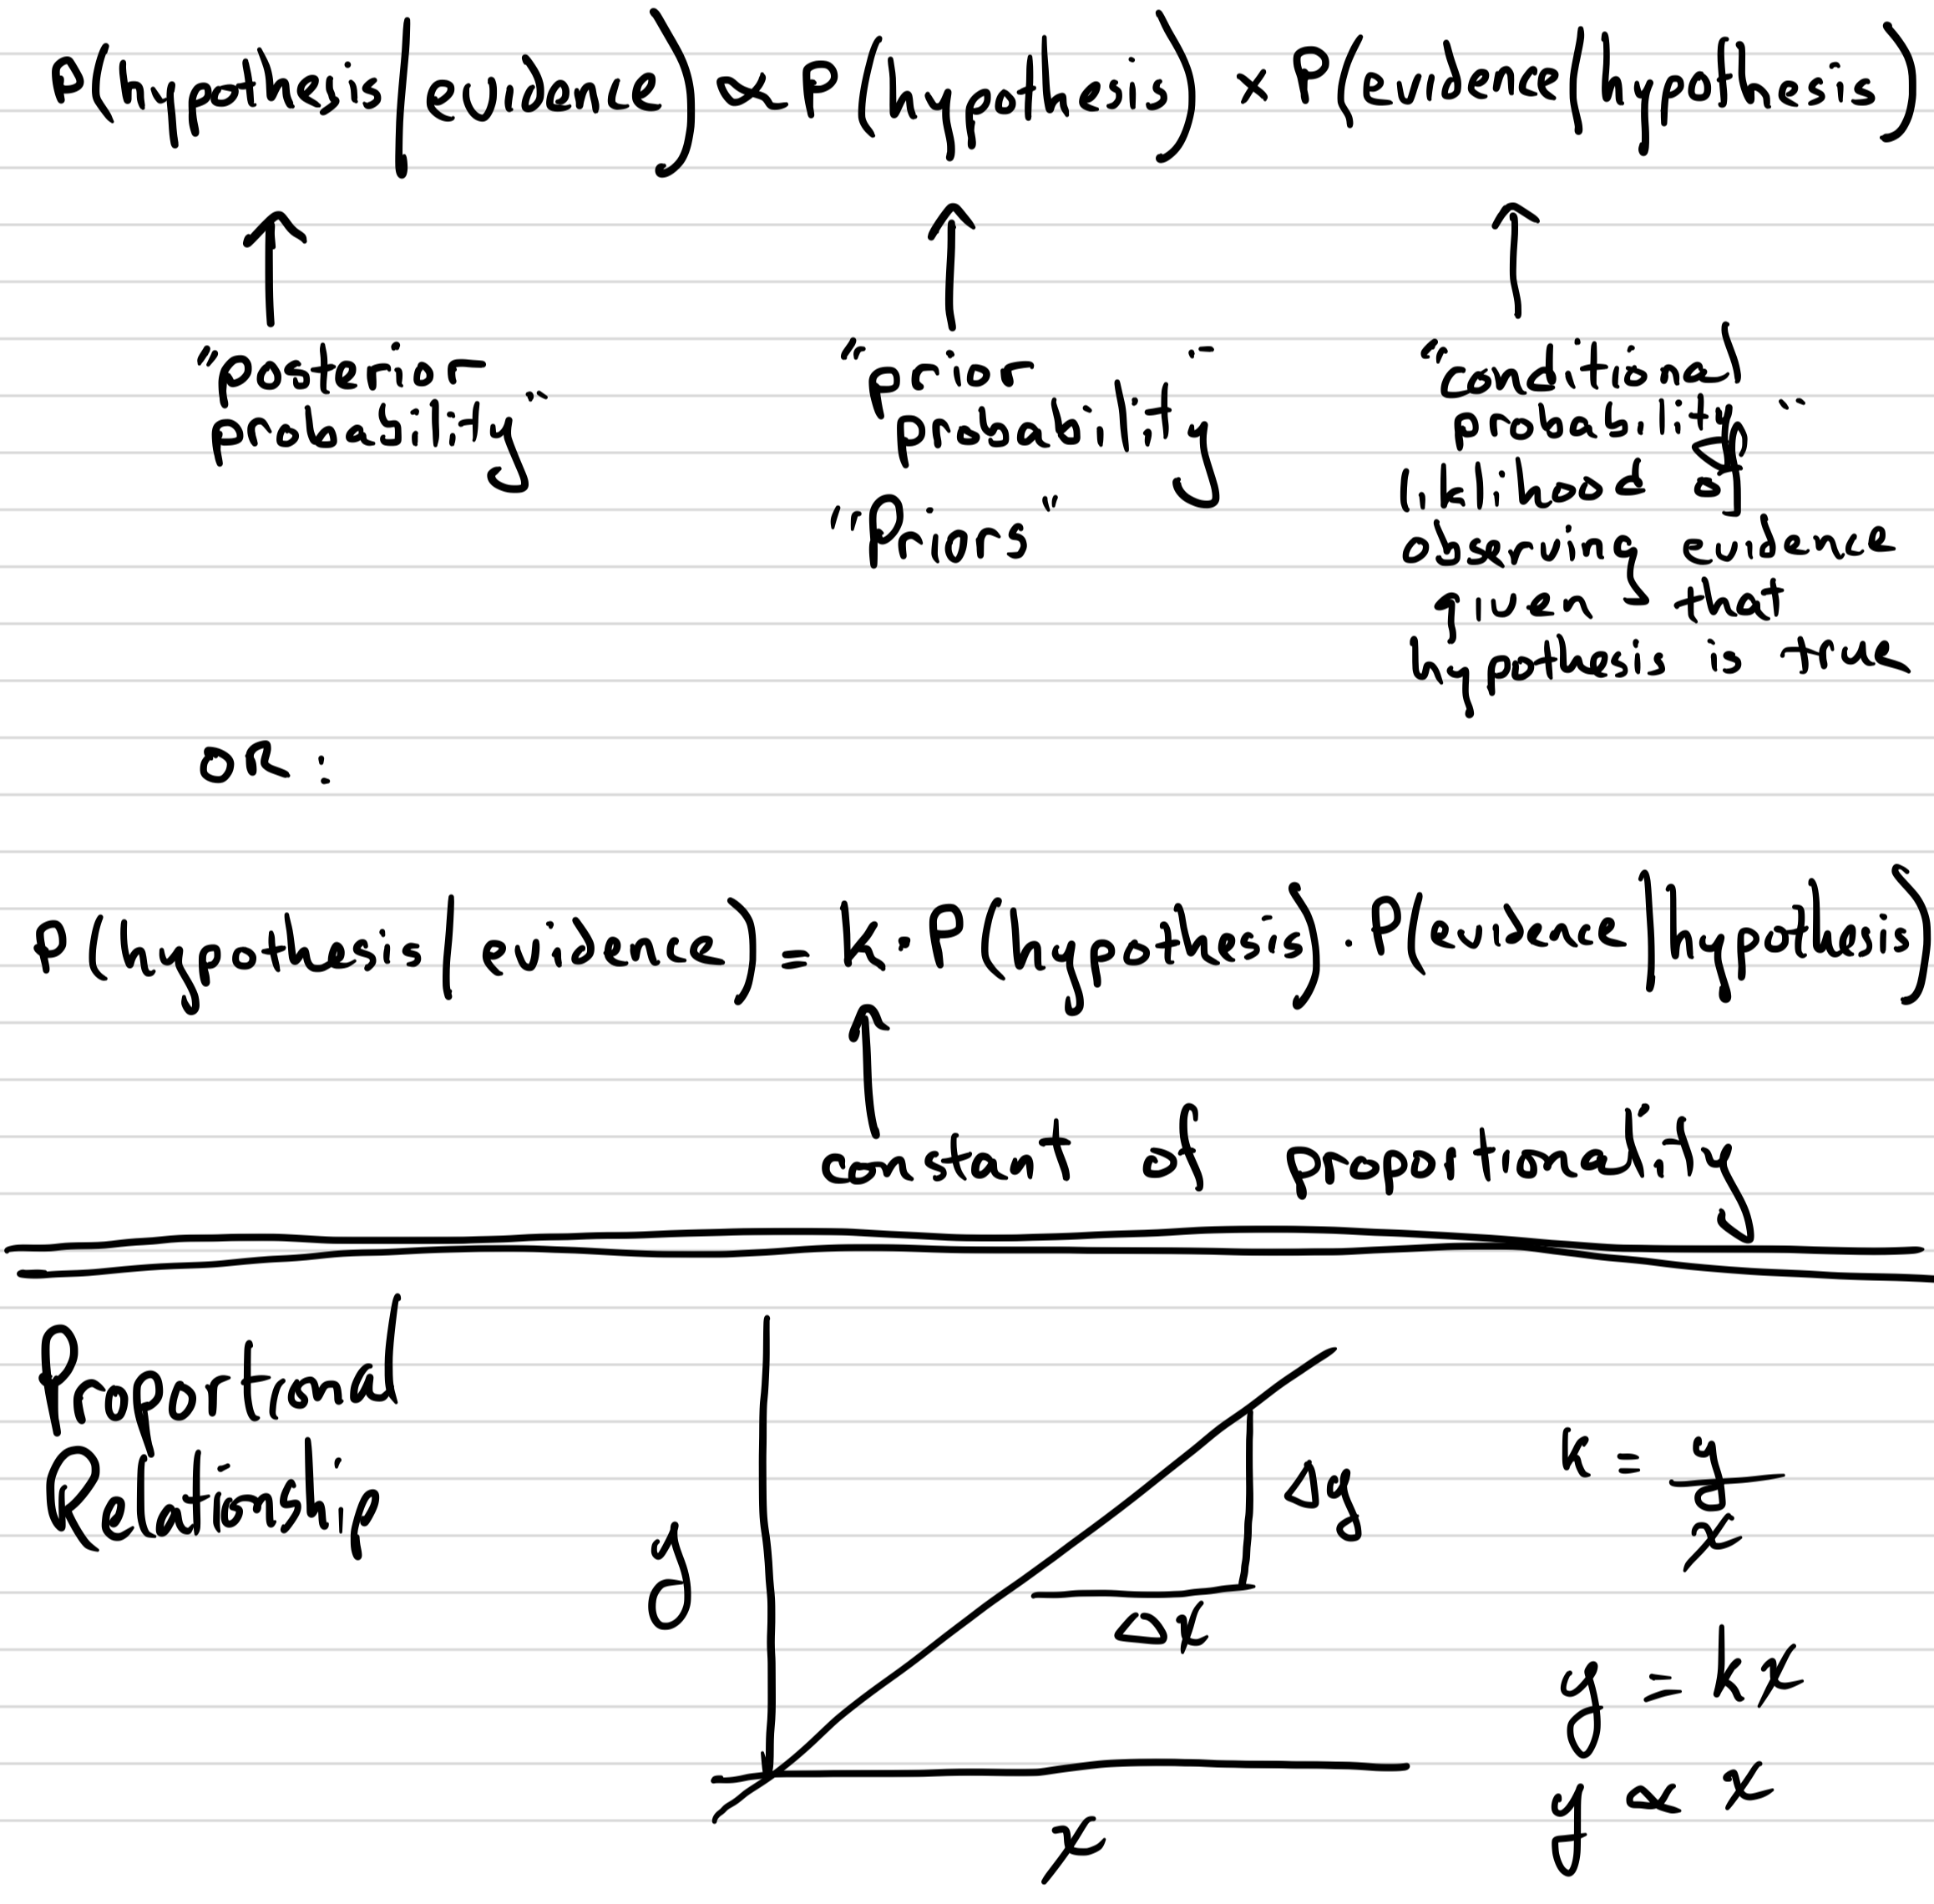 P(hypothesis | evidence) ∝ P(hypothesis) × P(evidence | hypothesis)
"posterior
probability"
"prior
probability"
"Priors"
"conditional
probability"
liklihood of
observing evidence
given that
hypothesis is true
OR:
P(hypothesis | evidence) = k · P(hypothesis) · P(evidence | hypothesis)
constant of proportionality
Proportional
Relationship
y
Δy
Δx
x
k = y/x
y = kx
y ∝ x